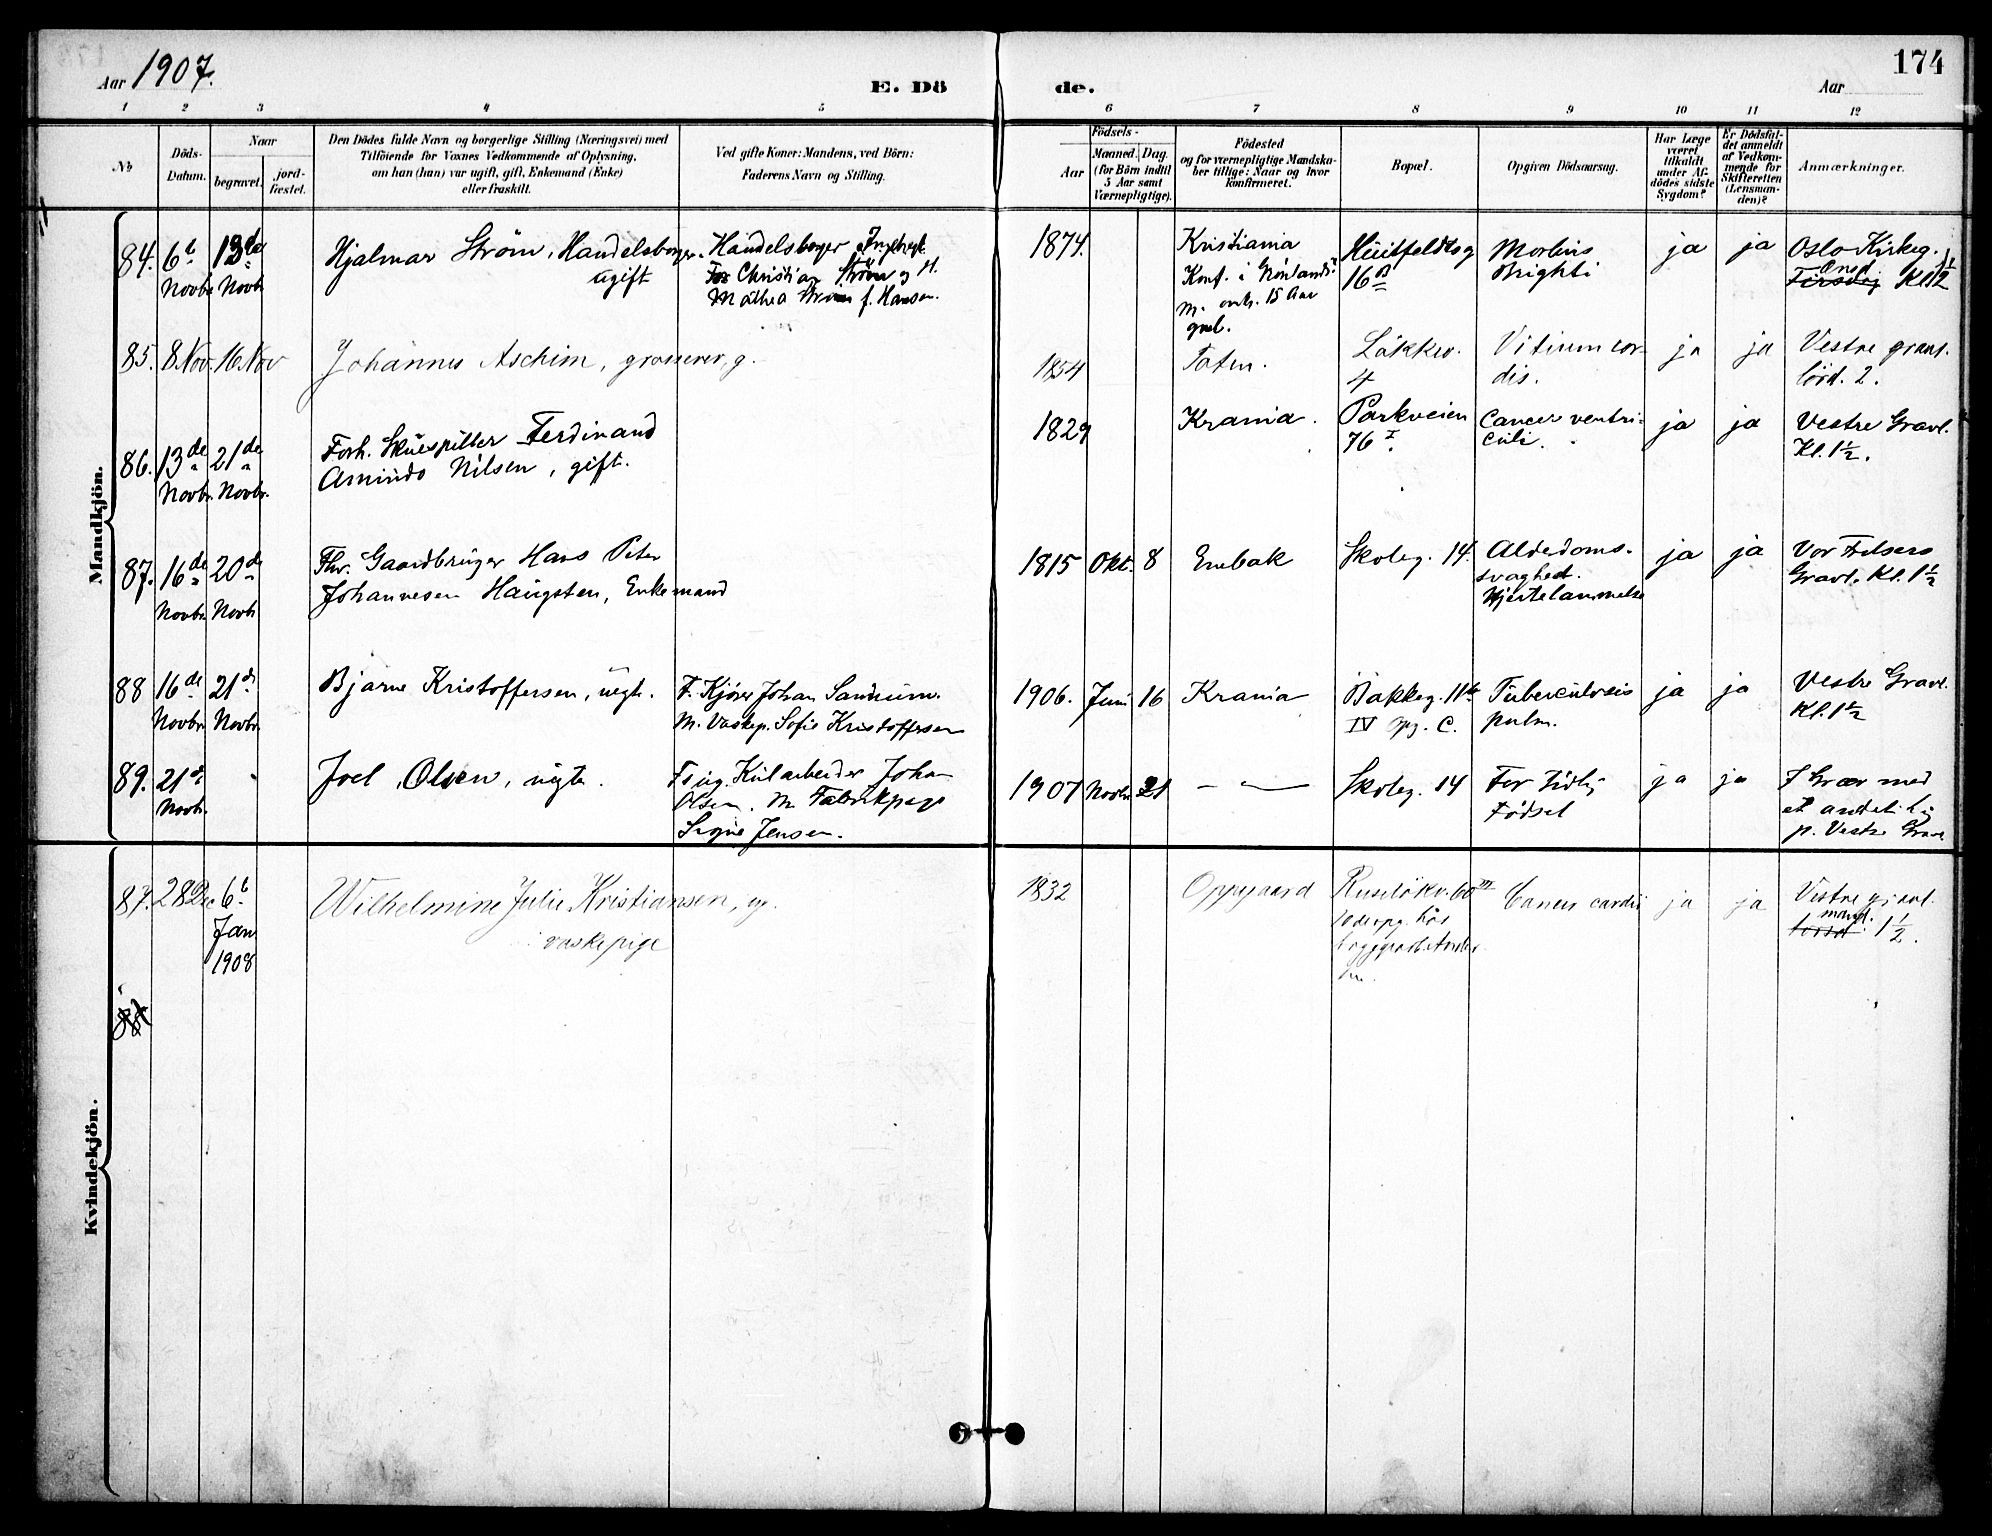 Aar 1907.
E. Dö
de.
Aar
174
1 2 3 4 5 6 7 8 9 10 11 12
No
Döds-
Datum.
Naar
begravet.
jord-
fæstet.
Den Dödes fulde Navn og borgerlige Stilling (Næringsvei) med
Tilföiende for Voxnes Vedkommende af Oplysning,
om han (hun) var ugift, gift, Enkemand (Enke)
eller fraskilt.
Ved gifte Koner: Mandens, ved Börn:
Faderens Navn og Stilling.
Födsels-
Aar
Maaned.
Dag.
(for Börn indtil
5 Aar samt
Værnepligtige).
Födested
og for værnepligtige Mandska-
ber tillige: Naar og hvor
konfirmeret.
Bopæl.
Opgiven Dödsaarsag.
Har Læge
været
tilkaldt
under Af-
dödes sidste
Sygdom?
Er Dödsfal-
det anmeldt
af Vedkom-
mende for
Skifteretten
(Lensman-
den)?
Anmærkninger.
Mandkjön.
84.
6t
Novbr
13de
Novbr
Hjalmar Ström, Handelsborger.
ugift
Handelsborger
Christian Ström og H.
Mathea f. Hansen.
1874.
Kristiania
Konf. i Grönlands
15 Aar
Huitfeldtsg
16
Morbus
Brighti
ja
ja
Oslo Kirkeg.
Onsd
Kl 1½
85.
8 Nov.
16 Nov
Johannes Aschim, grosserer, g.
1854
Toten.
Lökkev.
4
Vitium cor-
dis.
ja
ja
Vestre gravl.
lörd. 2.
86.
13de
Novbr.
21de
Novbr.
Forh. Skuespiller Ferdinand
Amindo Nilsen, gift.
1829
Krania.
Parkveien
76 I.
Cancer ventri-
culi.
ja
ja
Vestre Gravl.
Kl. 1½.
87.
16de
Novbr.
20de
Novbr
Fhv. Gaardbruger Hans Peter
Johannesen Haugsten, Enkemand
1815
Okt.
8
Enebak
Skoleg. 14.
Alderdoms-
svaghed.
Hjertelammelse
ja
ja
Vor Frelsers
Gravl. Kl. 1½
88
16de
Novbr.
21de
Novbr.
Bjarne Kristoffersen, uegte.
F. Kjörer Johan
M. Vaskep. Sofie Kristoffersen
1906.
Juni
16
Krania
Bakkeg. 11
IV opg. C.
Tuberculosis
pulm.
ja
ja
Vestre Gravl.
Kl. 1½
89.
21de
Novbr.
Joel Olsen, uegte.
F. ug. Kularbeider Johan
Olsen. M. Fabrikpige
Signe Jensen.
1907
Novbr
21
Skoleg. 14
For tidlig
Födsel
ja
ja
I Grav med
et andet Lig
p. Vestre Gravl.
Kvindekjön.
87.
28 Dec
6t
Jan
1908
Wilhelmine Julie Kristiansen, ug.
vaskepige
1832
Oppegaard
Ruselökv. 60 III
hos
Cancer cardii
ja
ja
Vestre gravl.
mand.
1½.
88